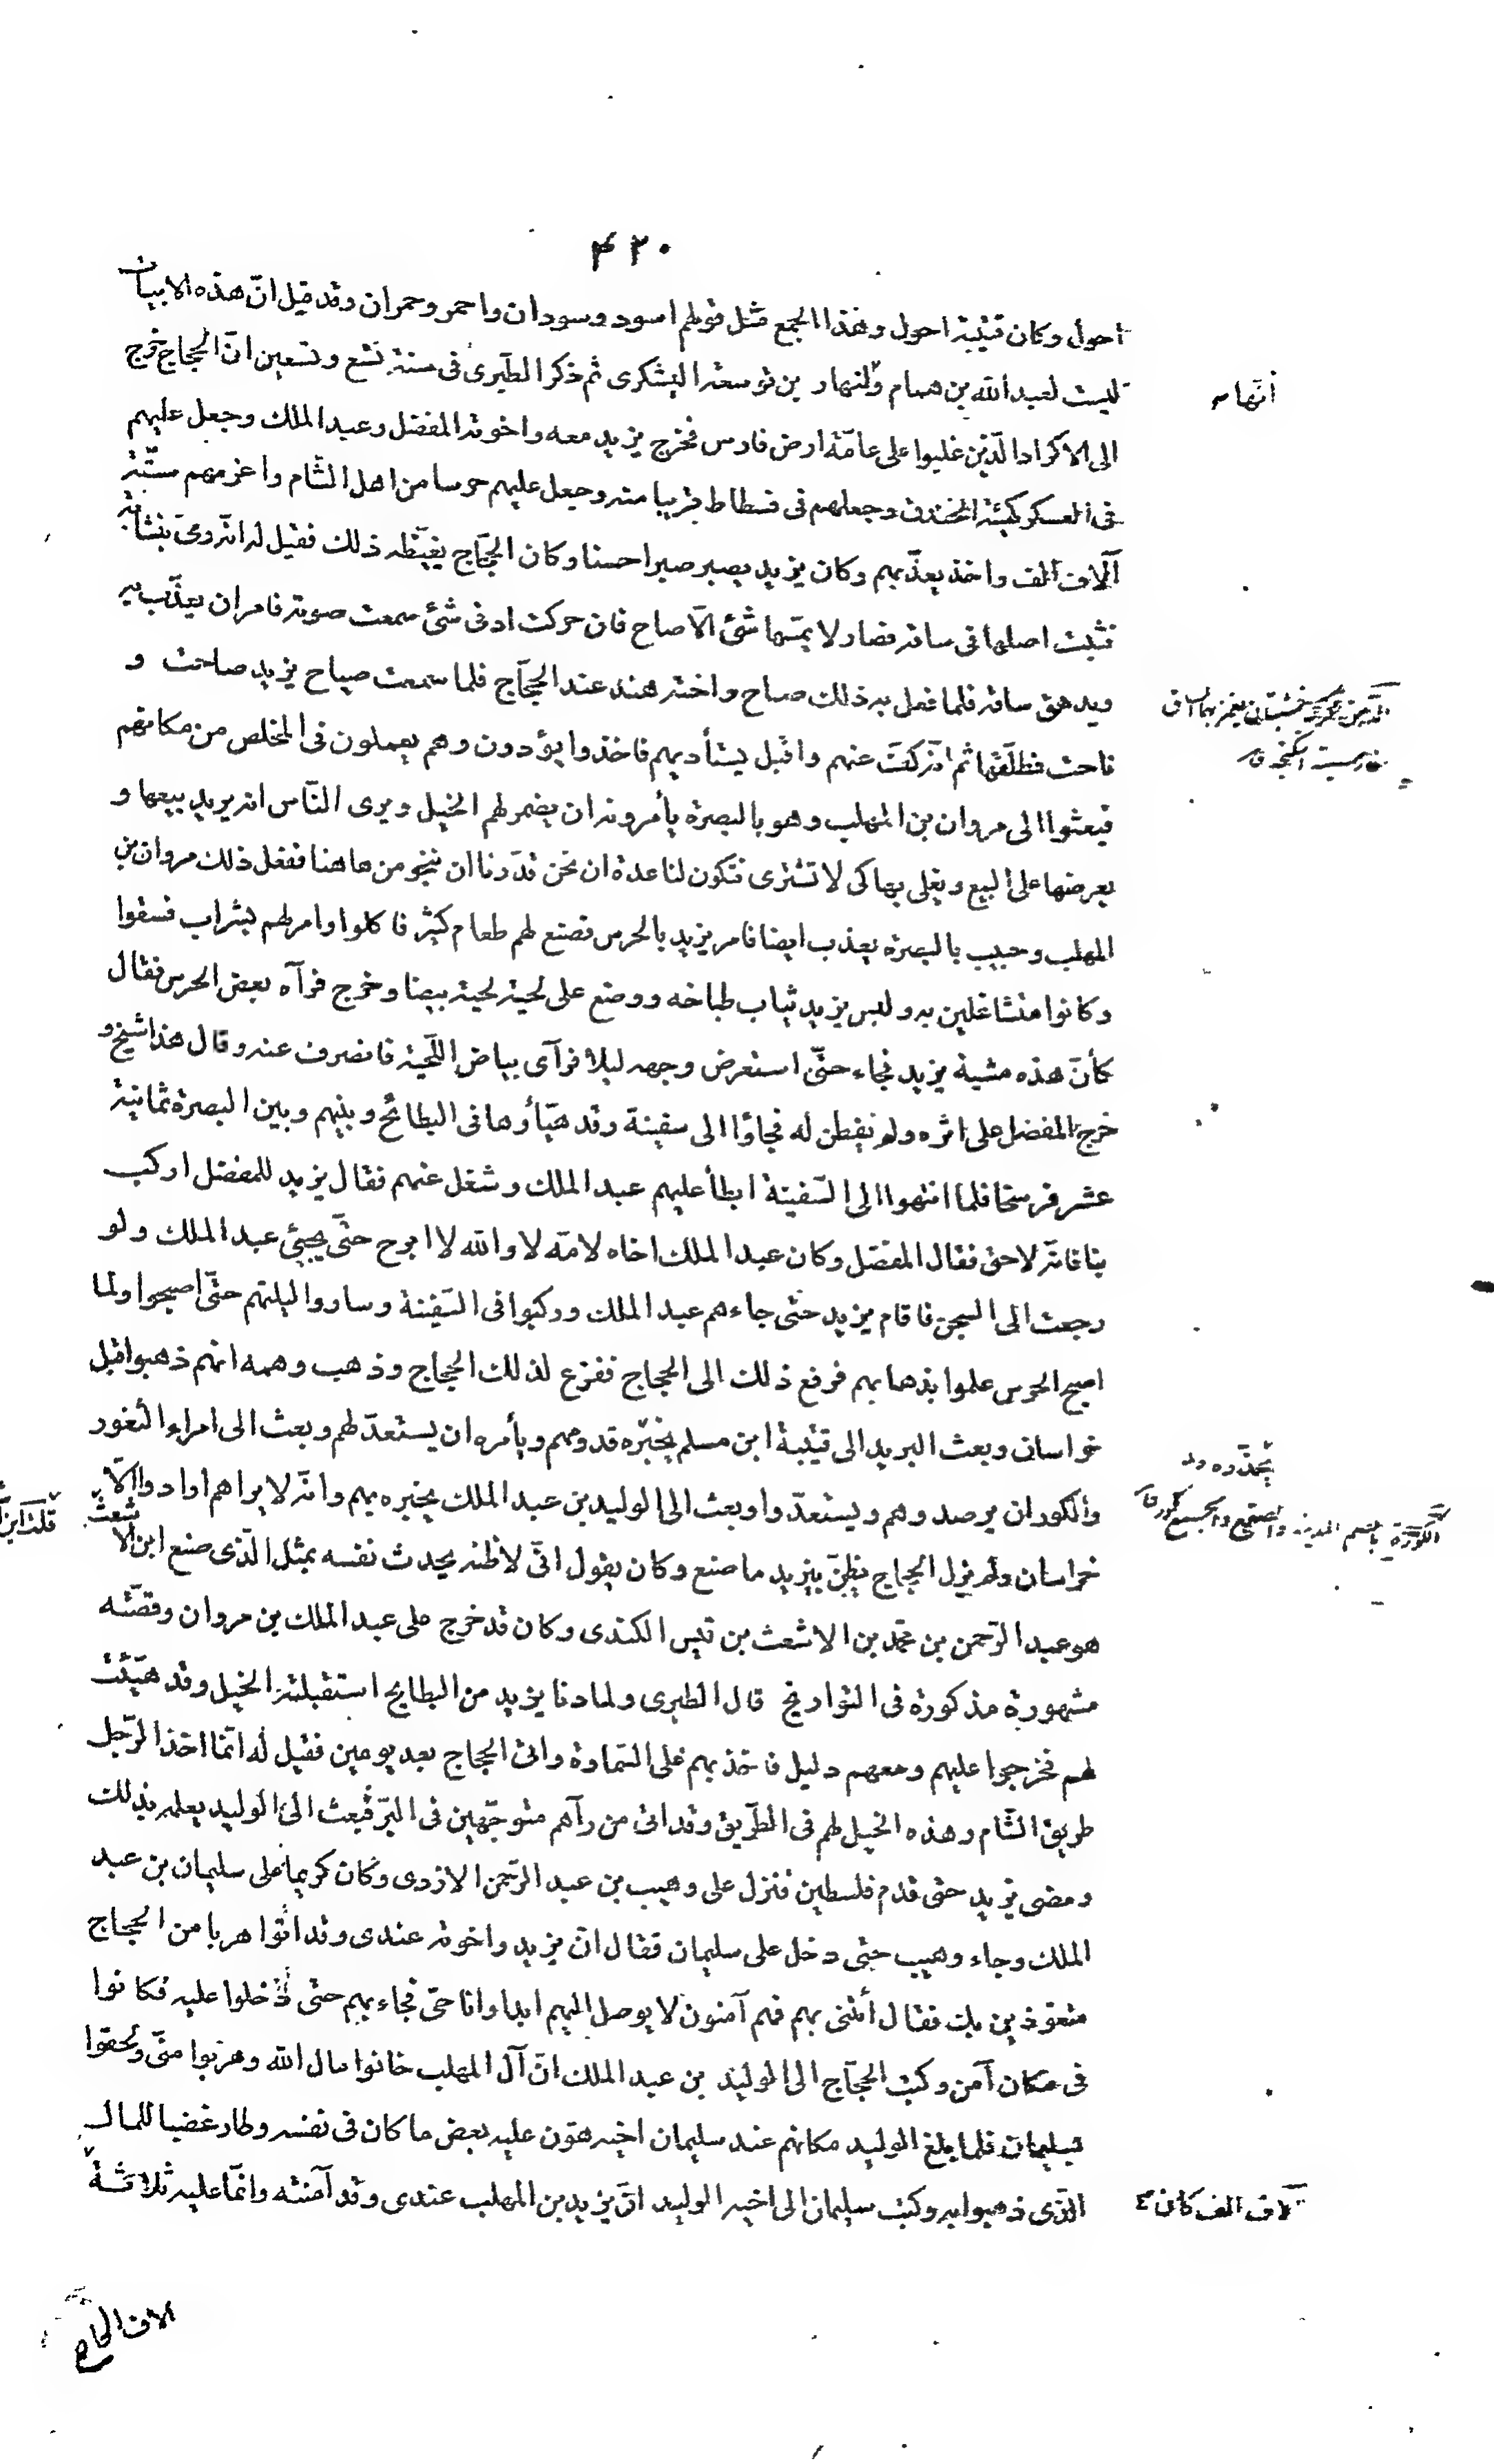 ۴۲۰
احول وكان قتيبة احول وهذا الجمع مثل قولهم اسود وسودان واحمر وحمران وقد قيل انّ هذه الابيات
ليست لعبد الله بن همام ولنهار بن توسعة اليشكرى ثم ذكر الطبرى فى سنة تسع وتسعين انّ الحجاج خرج
الى الاكراد الّذين غلبوا على عامّة ارض فارس فخرج يزيد معه واخوته المفضل وعبد الملك وجعل عليهم
فى العسكر كهيئة الخندق وجعلهم فى فسطاط قريبا منه وجعل عليهم حرسا من اهل الشّام واغرمهم ستّة
آلاف الف واخذ يعذّبهم وكان يزيد يصبر صبرا حسنا وكان الحجّاج يغيّظه ذلك فقيل له انّه رمى بنشابة
فثبت اصلها فى ساقه فصار لا يمسّها شئ الّا صاح فان حركت ادنى شئ سمعت صوته فامر ان يعذّب به
ويدهق ساقه فلما فعل به ذلك صاح واخته هند عند الحجّاج فلما سمعت صياح يزيد صاحت و
ناحت فطلّقها ثم انّه كفّ عنهم واقبل يستأديهم فاخذوا يؤدون وهم يعملون فى المخلص من مكانهم
فبعثوا الى مروان بن المهلب وهو بالبصرة يأمرونه ان يضمر لهم الخيل ويرى النّاس انه يريد بيعها و
يعرضها على البيع ويغلى بها كى لا تشترى فتكون لنا عدة ان نحن قدرنا ان ننجو من هاهنا ففعل ذلك مروان بن
المهلب وحبيب بالبصرة يعذب ايضا فامر يزيد بالحرس فصنع لهم طعام كثير فاكلوا وامر لهم بشراب فسقوا
وكانوا متشاغلين به ولبس يزيد ثياب طباخه ووضع على لحيته لحية بيضا وخرج فرآه بعض الحرس فقال
كأنّ هذه مشية يزيد فجاء حتّى استعرض وجهه ليلا فرآى بياض اللّحية فانصرف عنه وقال هذا شيخ و
خرج المفضل على اثره ولم يفطن له فجاؤا الى سفينة وقد هيّأوها فى البطائح وبينهم وبين البصرة ثمانية
عشر فرسخا فلما انتهوا الى السّفينة ابطأ عليهم عبد الملك وشغل عنهم فقال يزيد للمفضل اركب
بنا فانّه لاحق فقال المفضّل وكان عبد الملك اخاه لامّه لا والله لا ابرح حتّى يجئ عبد الملك ولو
رجعت الى السجن فاقام يزيد حتى جاءهم عبد الملك وركبوا فى السّفينة وساروا ليلتهم حتّى اصبحوا ولما
اصبح الحرس علموا بذهابهم فرفع ذلك الى الحجاج ففزع لذلك الحجاج وذهب وهمه انهم ذهبوا قبل
خراسان وبعث البريد الى قتيبة ابن مسلم يخبّره قدومهم ويأمره ان يستعدّ لهم وبعث الى امراء الثغور
والكور ان يرصدوهم ويستعدّوا وبعث الى الوليد بن عبد الملك يخبره بهم وانّه لا يراهم ارادوا الّا
خراسان ولم يزل الحجاج يظنّ بيزيد ما صنع وكان يقول انّى لاظنه يحدث نفسه بمثل الّذى صنع ابن الاشعث
هو عبد الرّحمن بن محمّد بن الاشعث بن قيس الكندى وكان قد خرج على عبد الملك بن مروان وقصّته
مشهورة مذكورة فى التواريخ قال الطبرى ولما دنا يزيد من البطايح استقبلته الخيل وقد هيّئت
لهم فخرجوا عليهم ومعهم دليل فاخذ بهم على السّماوة واتى الحجاج بعد يومين فقيل له انّما اخذ الرّجل
طريق الشّام وهذه الخيل لهم فى الطّريق وقد اتى من رآهم متوجّهين فى البرّ فبعث الى الوليد يعلمه بذلك
ومضى يزيد حتى قدم فلسطين فنزل على وهيب بن عبد الرّحمن الازدى وكان كريما على سليمان بن عبد
الملك وجاء وهيب حتى دخل على سليمان فقال انّ يزيد واخوته عندى وقد اتوا هربا من الحجاج
متعوّذين بك فقال أتنى بهم فهم آمنون لا يوصل اليهم ابدا وانا حىّ فجاء بهم حتى دخلوا عليه فكانوا
فى مكان آمن وكتب الحجّاج الى الوليد بن عبد الملك انّ آل المهلب خانوا مال الله وهربوا منّى ولحقوا
بسليمان فلما بلغ الوليد مكانهم عند سليمان اخيه هوّن عليه بعض ما كان فى نفسه وطار غضبا للمال
الّذى ذهبوا به وكتب سليمان الى اخيه الوليد انّ يزيد بن المهلب عندى وقد آمنته وانّما عليه ثلاثة
انّها
يحذّره
آلاف الف كان